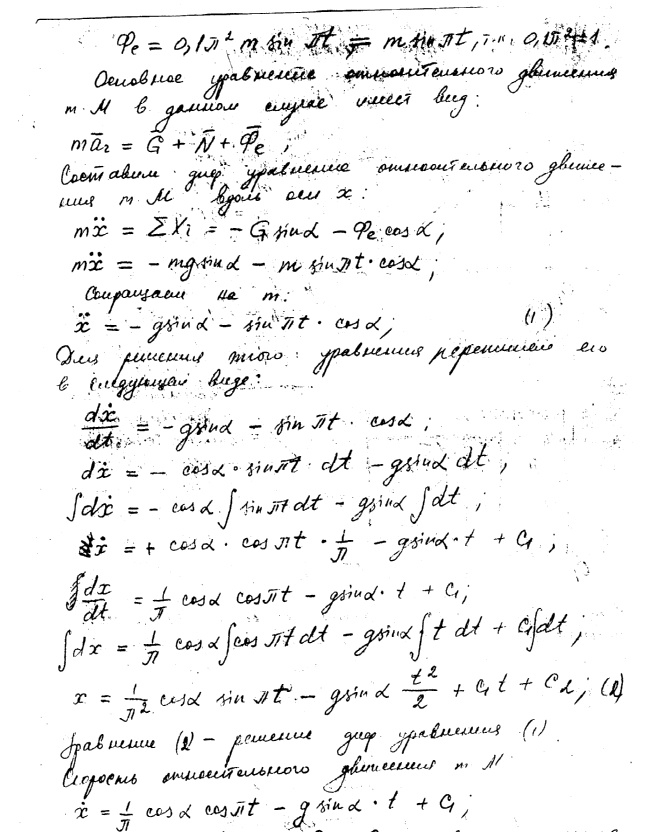 Φe = 0,1π² m sin πt = m sin πt, т.к. 0,1π²≈1.
Основное уравнение относительного движения
т. М в данном случае имеет вид:
mār = Ḡ + N̄ + Φ̄e ;
Составим диф. уравнение относительного движе-
ния т. М вдоль оси x:
mẍ = ΣXi = - G sinα - Φe cosα;
mẍ = - mg sinα - m sin πt · cosα;
Сокращаем на m:
ẍ = - g sinα - sin πt · cosα; (1)
Для решения этого уравнения перепишем его
в следующем виде:
dẋ/dt = - g sinα - sin πt · cosα;
dẋ = - cosα · sin πt · dt - g sinα dt,
∫dẋ = - cosα ∫ sin πt dt - g sinα ∫ dt ;
ẋ = + cosα · cos πt · 1/π - g sinα · t + C1 ;
dx/dt = 1/π cosα cos πt - g sinα · t + C1;
∫dx = 1/π cosα ∫cos πt dt - g sinα ∫ t dt + C1∫dt ;
x = 1/π² cosα sin πt - g sinα t²/2 + C1 t + C2 ; (2)
Уравнение (2) - решение диф уравнения (1).
Скорость относительного движения т. М
ẋ = 1/π cosα cos πt - g sinα · t + C1;